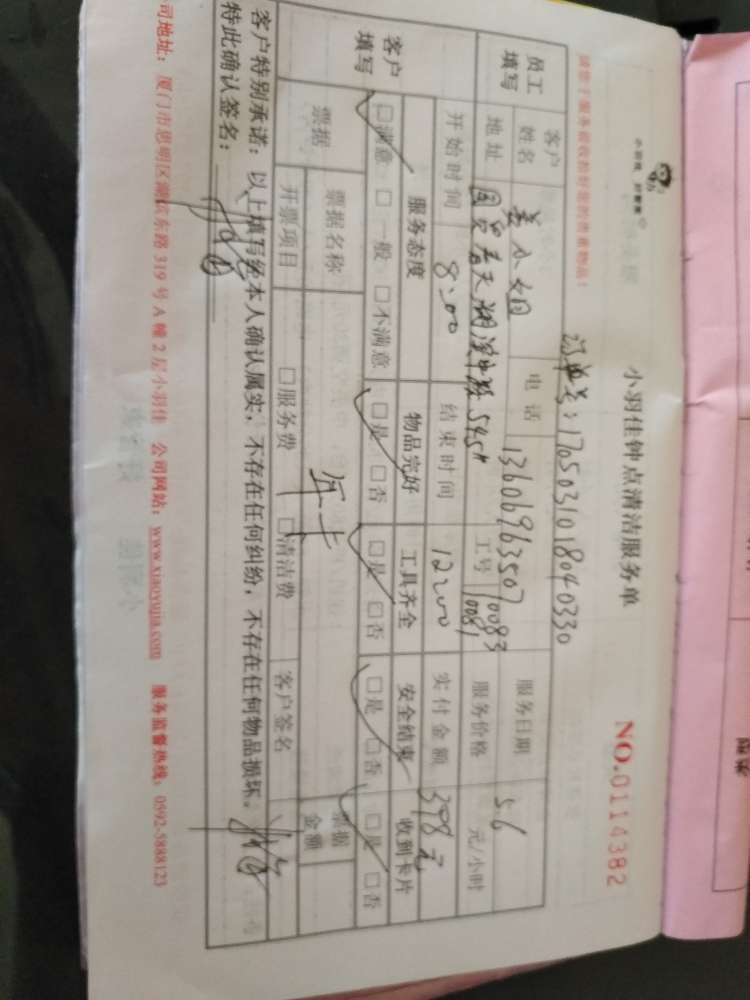 小羽佳 好管家
小羽佳钟点清洁服务单
NO.0114382
订单号:1705031018040330
请您于服务前收拾好您的贵重物品!
员工填写
客户姓名 姜小姐 电话 13606963507 服务日期 5.6
地址 国贸春天湖滨中路545# 工号 10083 10081 服务价格 元/小时
开始时间 8:00 结束时间 12:00 实付金额 398元
客户填写
服务态度 物品完好 工具齐全 安全结束 收到卡片
□满意 □一般 □不满意 □是 □否 □是 □否 □是 □否 □是 □否
票据 票据名称 年卡 票据金额
开票项目 □服务费 □清洁费 客户签名
客户特别承诺:以上填写经本人确认属实,不存在任何纠纷,不存在任何物品损坏。
特此确认签名:
司地址:厦门市思明区湖滨东路319号A幢2层小羽佳 公司网站:www.xiaoyujia.com 服务监督热线:0592-5888123